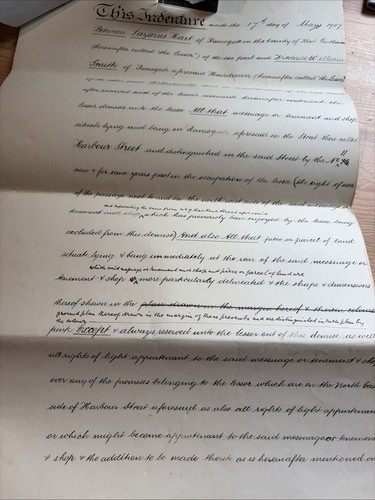 This Indenture made the 17th day of May 1907
Between Lazarus Hart of Ramsgate in the County of Kent Gentleman
(hereinafter called the lessor) of the one part and Frederick William
Smith of Ramsgate aforesaid Hairdresser (hereinafter called the lessee)
of the other part
lessor demises unto the lessee All that messuage or tenement and shop
situate lying and being in Ramsgate aforesaid in the Street there called
Harbour Street and distinguished in the said Street by the No.
now & for some years past in the occupation of the lessee (the right of user
of the passage next to and on the south east side of the said messuage or
and separating the same from
tenement and shop which has previously been enjoyed by the lessee being
excluded from this demise) And also All that piece or parcel of land
situate lying & being immediately at the rear of the said messuage or
which said messuage or tenement and shop and piece or parcel of land are
tenement & shop more particularly delineated & the shape & dimensions
thereof shewn in the plan drawn in the margin hereof & therein coloured
ground plan thereof drawn in the margin of these presents and are distinguished in such plan by
the colour
pink Except & always reserved unto the lessor out of this demise as well
all rights of light appurtenant to the said messuage or tenement & shop
over any of the premises belonging to the lessor which are on the North East
side of Harbour Street aforesaid as also all rights of light appurtenant
or which might become appurtenant to the said messuage or tenement
& shop & the addition to be made thereto as is hereinafter mentioned